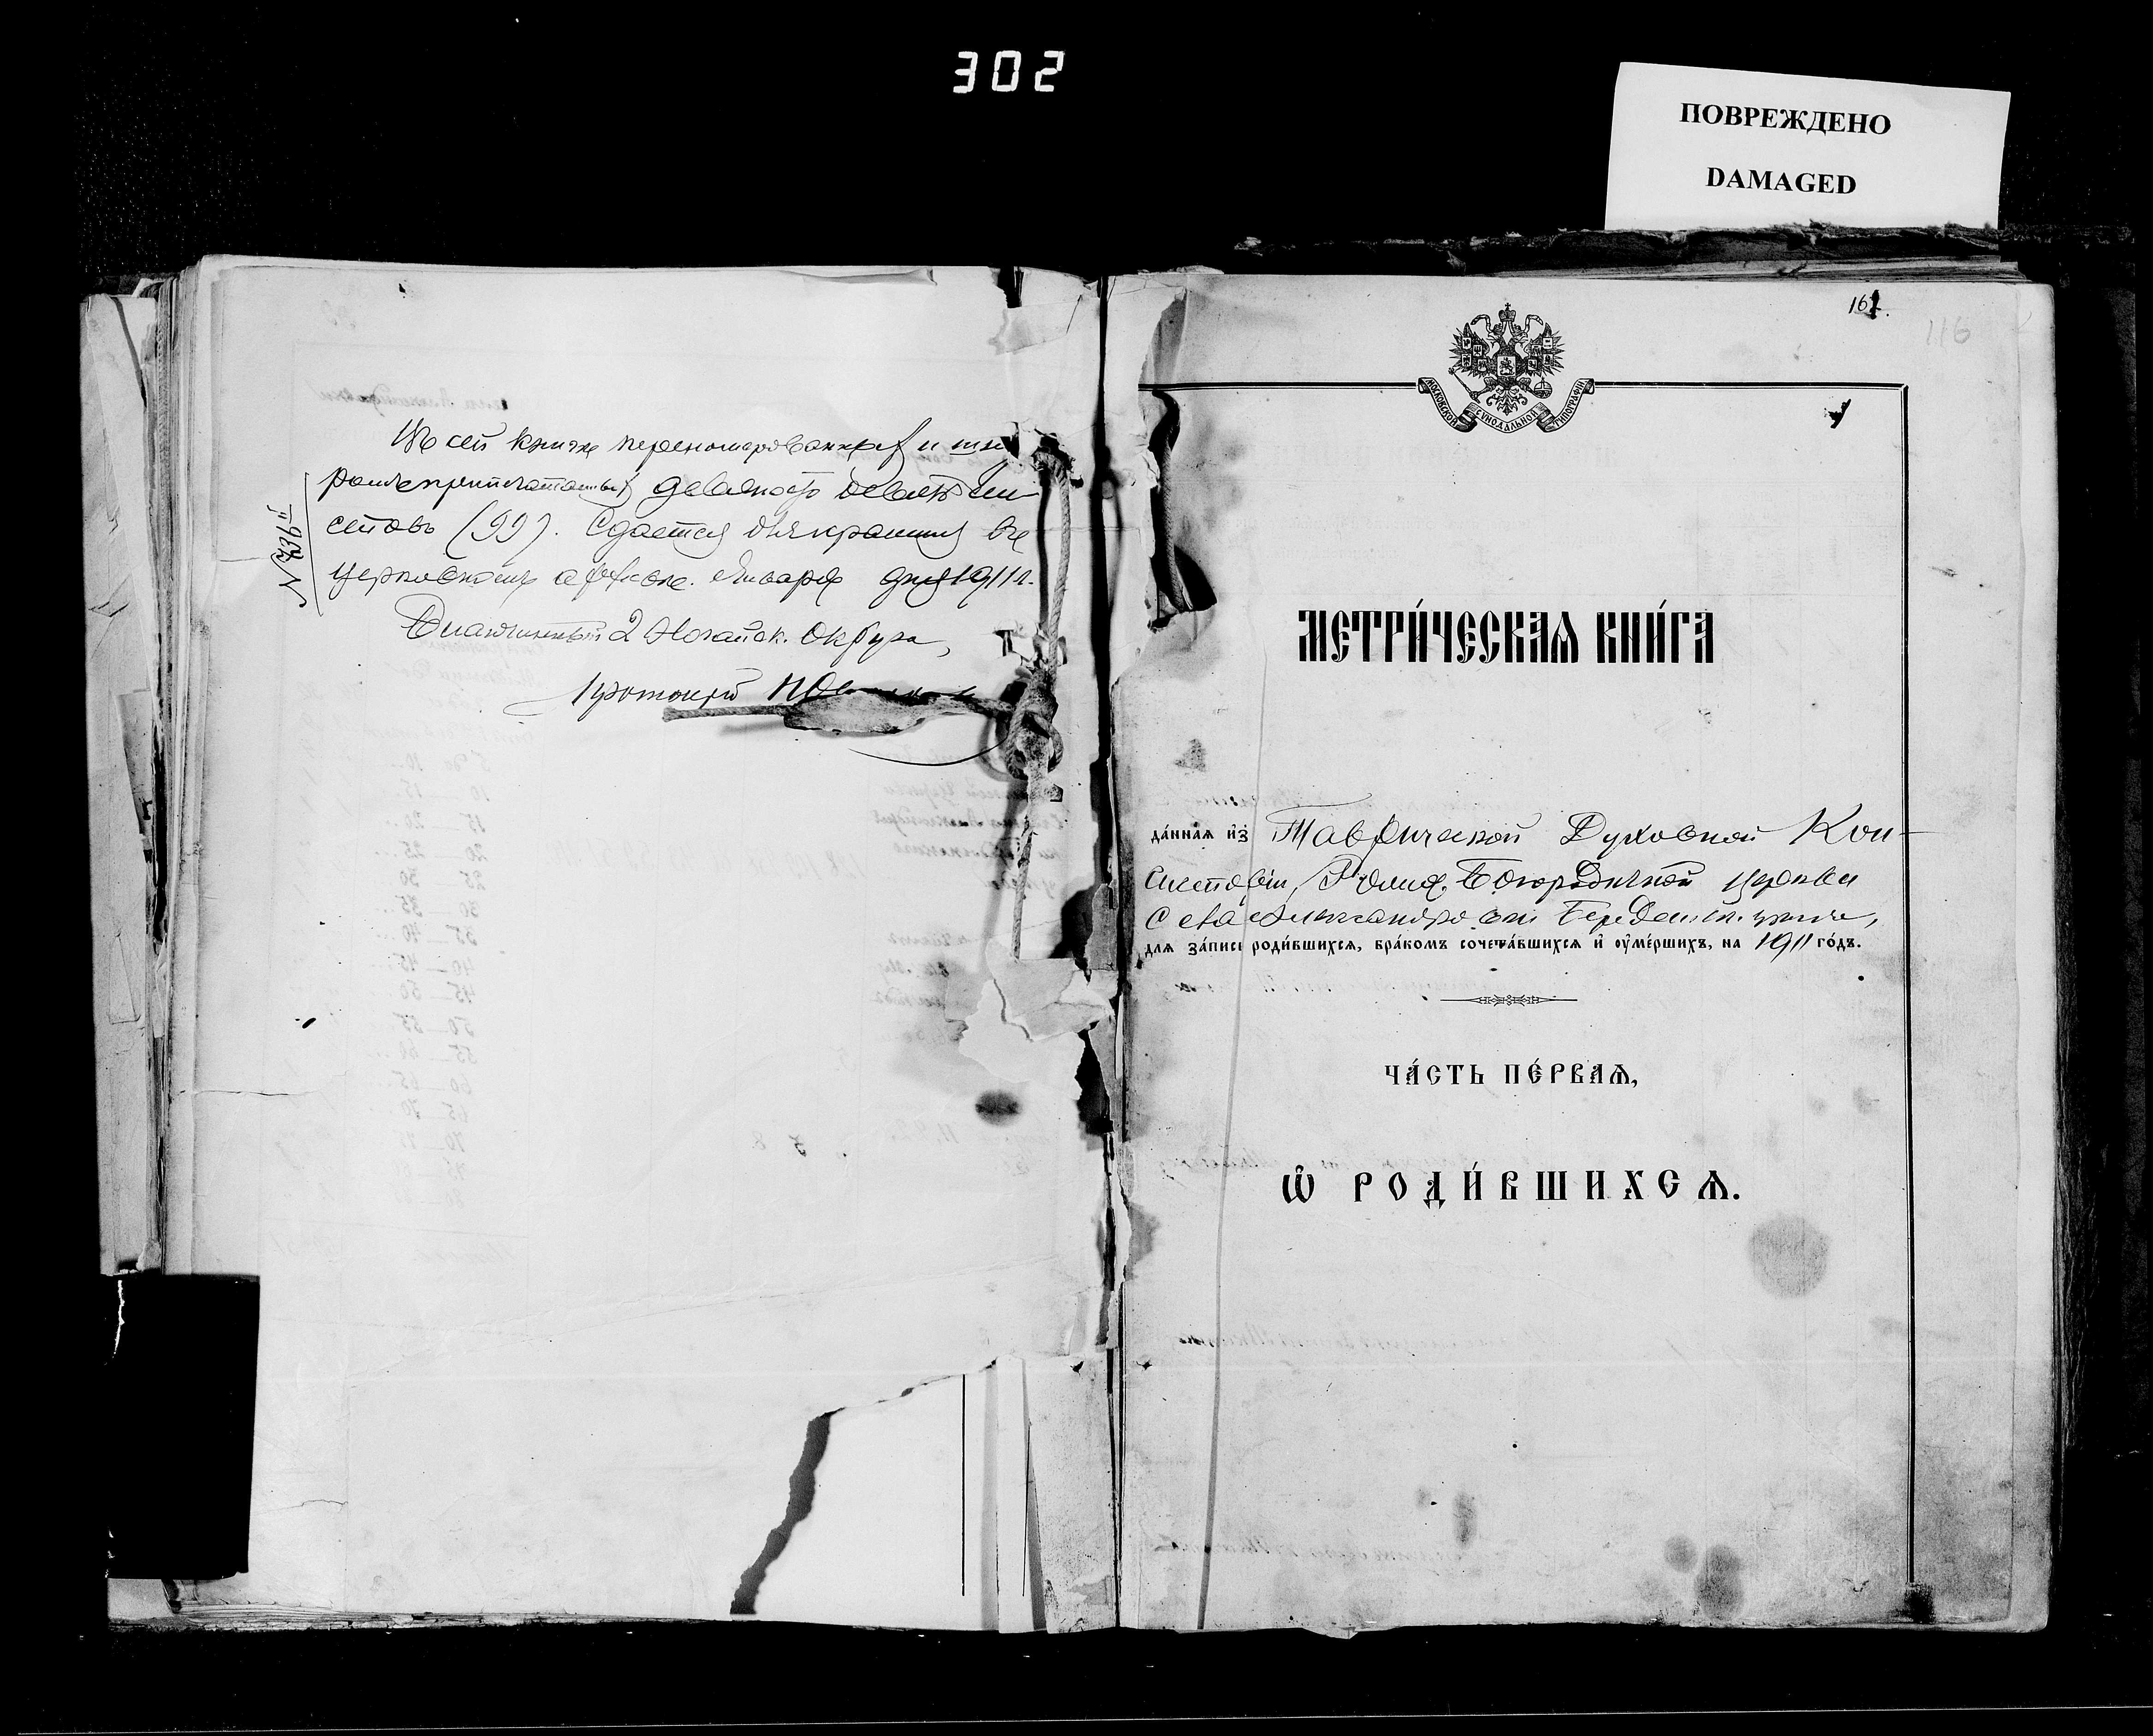 302
ПОВРЕЖДЕНО
DAMAGED
Въ сей книге перенумерованныхъ и
девяносто девять
стовъ (99). Сдается для храненія въ
церковномъ архиве. Января дня 1911 г.
Благочинный 2 Ногайск. Округа,
Протоіерей
161.
116
1
МОСКОВСКОЙ СѴНОДАЛЬНОЙ ТИПОГРАФІИ
МЕТРИ́ЧЕСКАѦ КНИ́ГА
да́ннаѧ и҆з̾ Таврической Духовной Кон-
систоріи, Рожд. Богородичной церкви
села Александровки Бердянск. уезда,
для за́писи роди́вшихсѧ, бра́комъ сочета́вшихсѧ и҆ ᲂу҆ме́ршихъ, на 1911 го́дъ.
ЧА́СТЬ ПЕ́РВАѦ,
Ѡ҆ РОДИ́ВШИХСѦ.